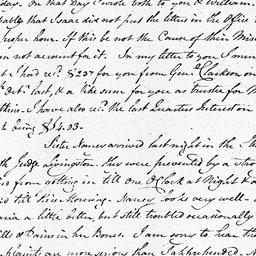 day. On that day I wrote both to you & William.
ally that Isaac did not put the letters in the Office
proper hour. If this be not the Cause of this Mis
an not account for it. In my letter to you I men
t I had recd. $237 for you from Genl. Clarkson on
Debt. last, & a like sum for you as trustee for M
thins. I have also recd. the last Quarters Interest on
k being $54.03—
Sister Nancy arrived last night in the St
th Judge Livingston. They were prevented by a stro
from getting in till one O Clock at Night &
till this Morning. Nancy looks very well
ria a little better, but still troubled occasionally
lls & Pains in her Bones. I am sorry to hear th
are more serious than I apprehended. N